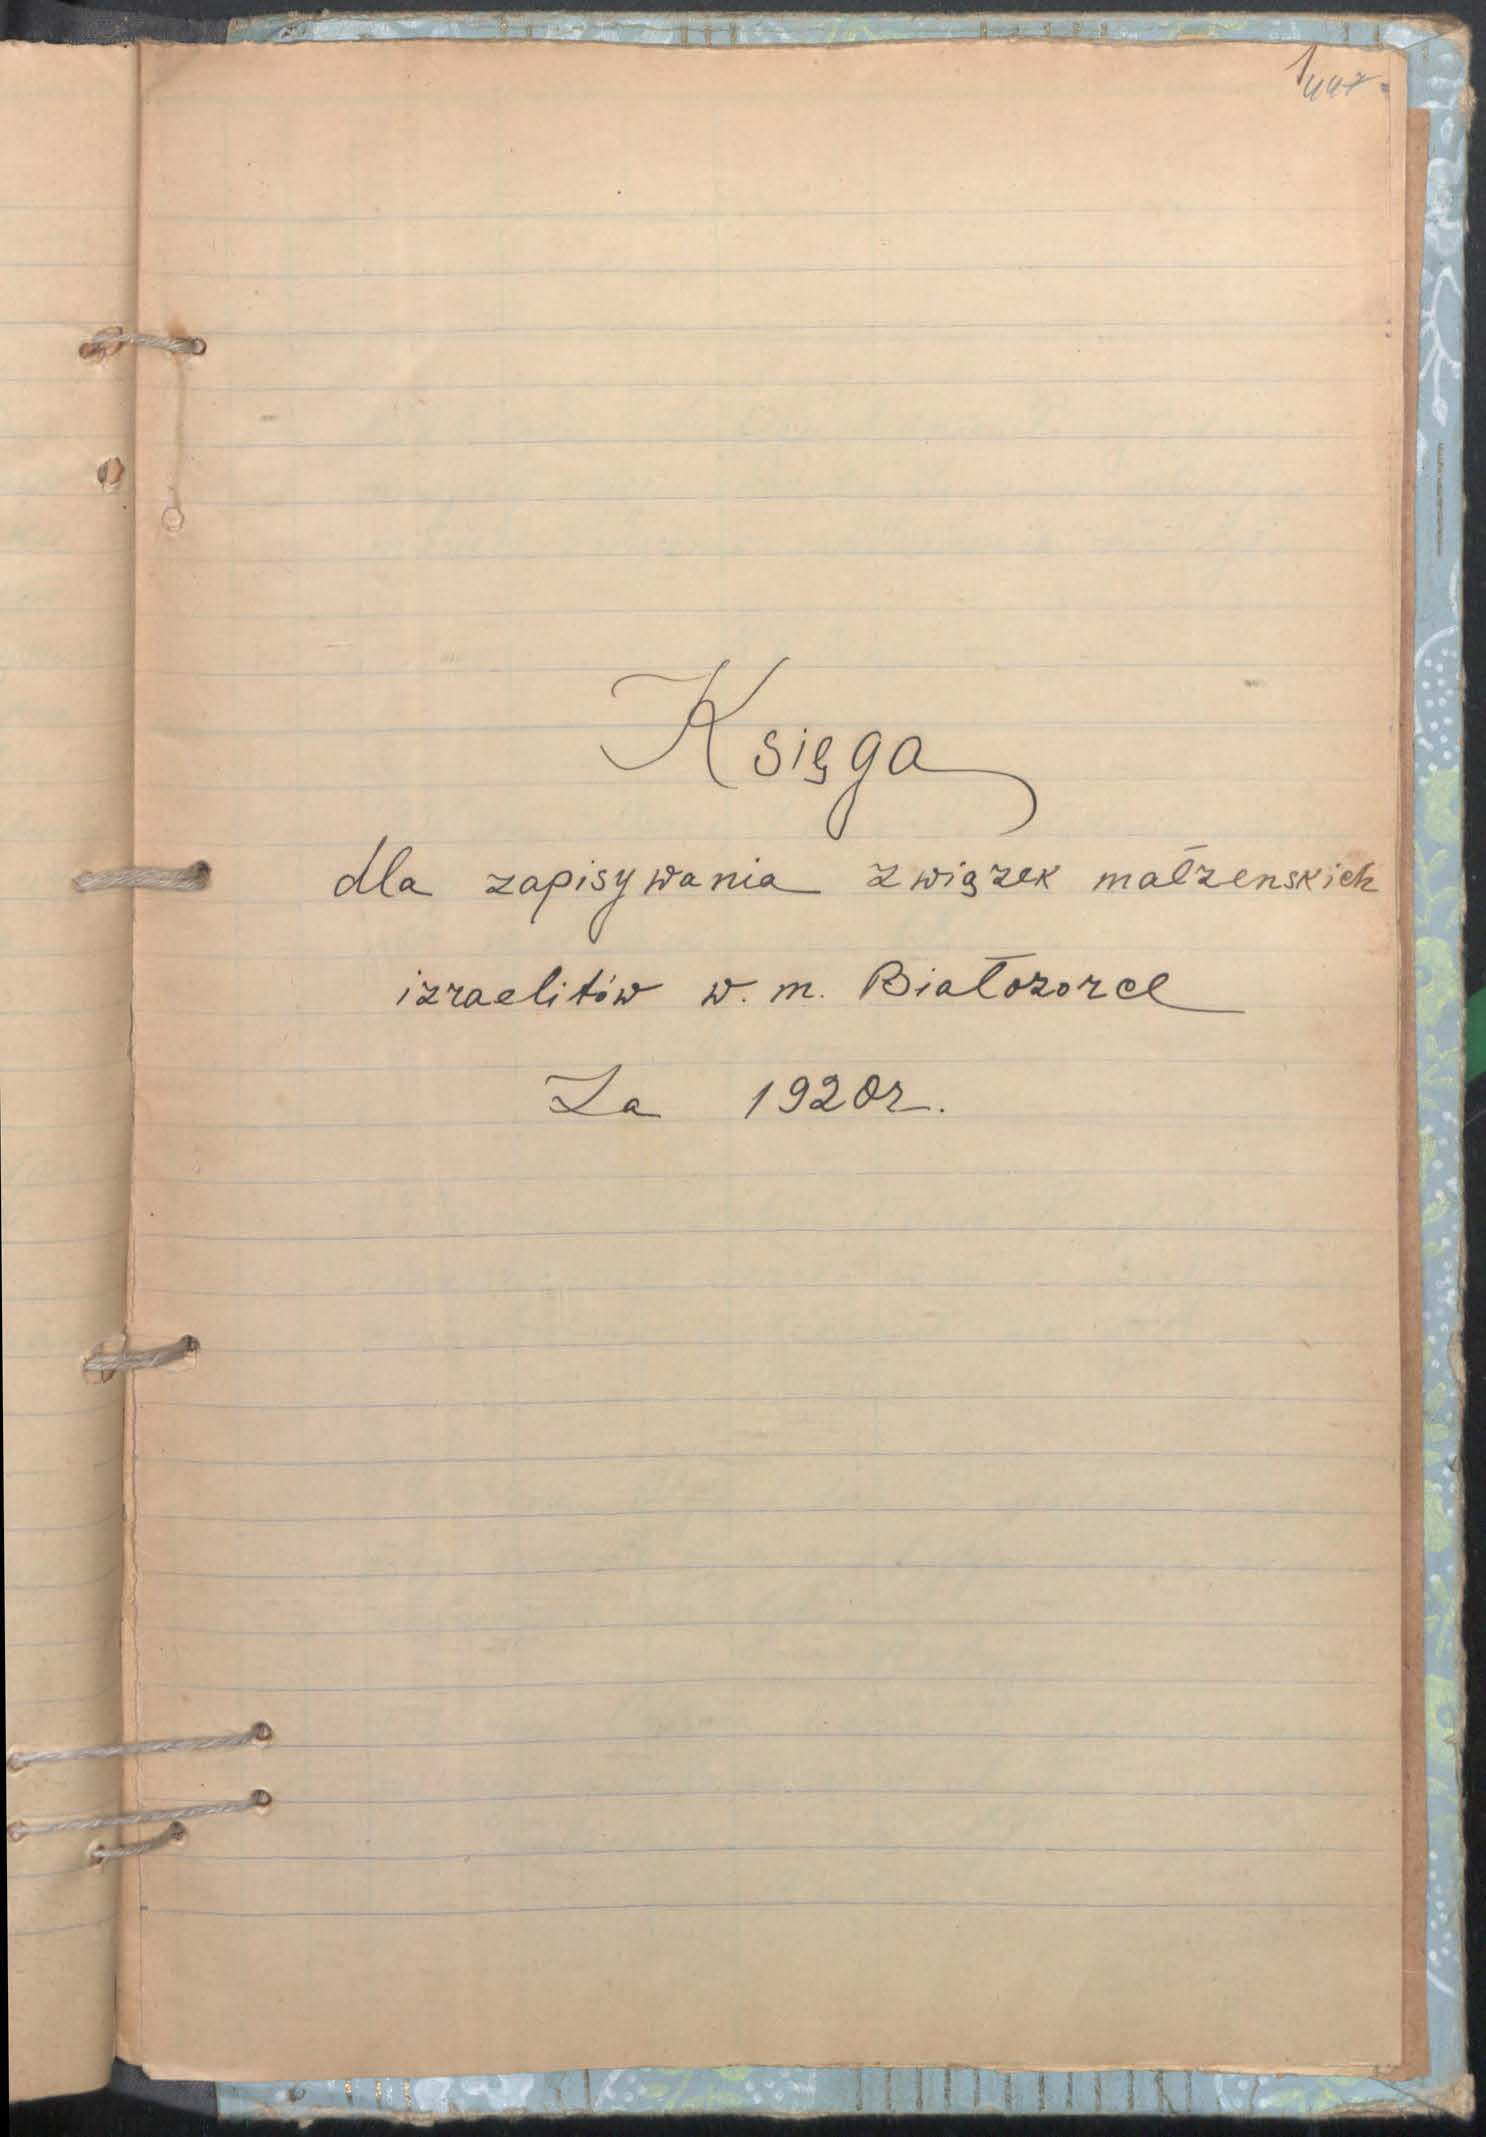 1
447
Księga
dla zapisywania związek małzenskich
izraelitów w. m. Białozorce
Za 1920r.